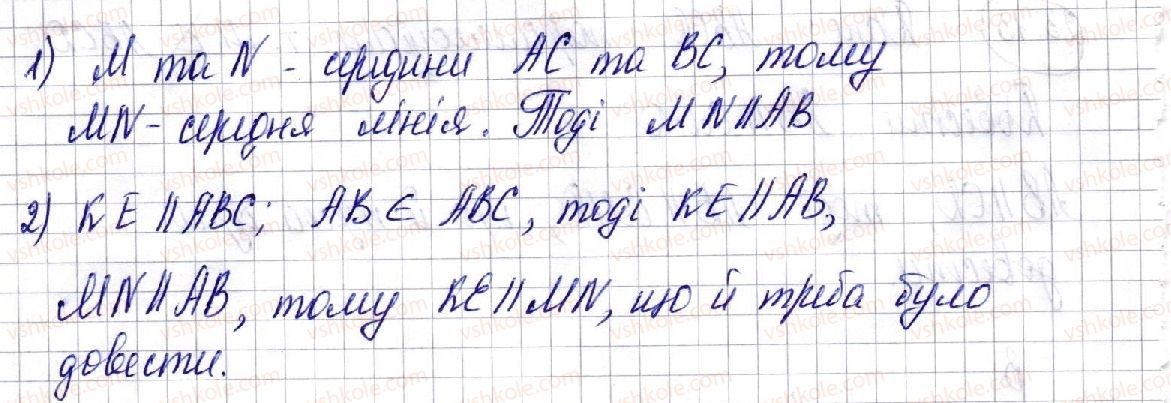 1) M та N - середини AC та BC, тому
MN - середня лінія. Тоді MN || AB
2) KE || ABC; AB ∈ ABC, тоді KE || AB,
MN || AB, тому KE || MN, що й треба було
довести.
vshkole.com